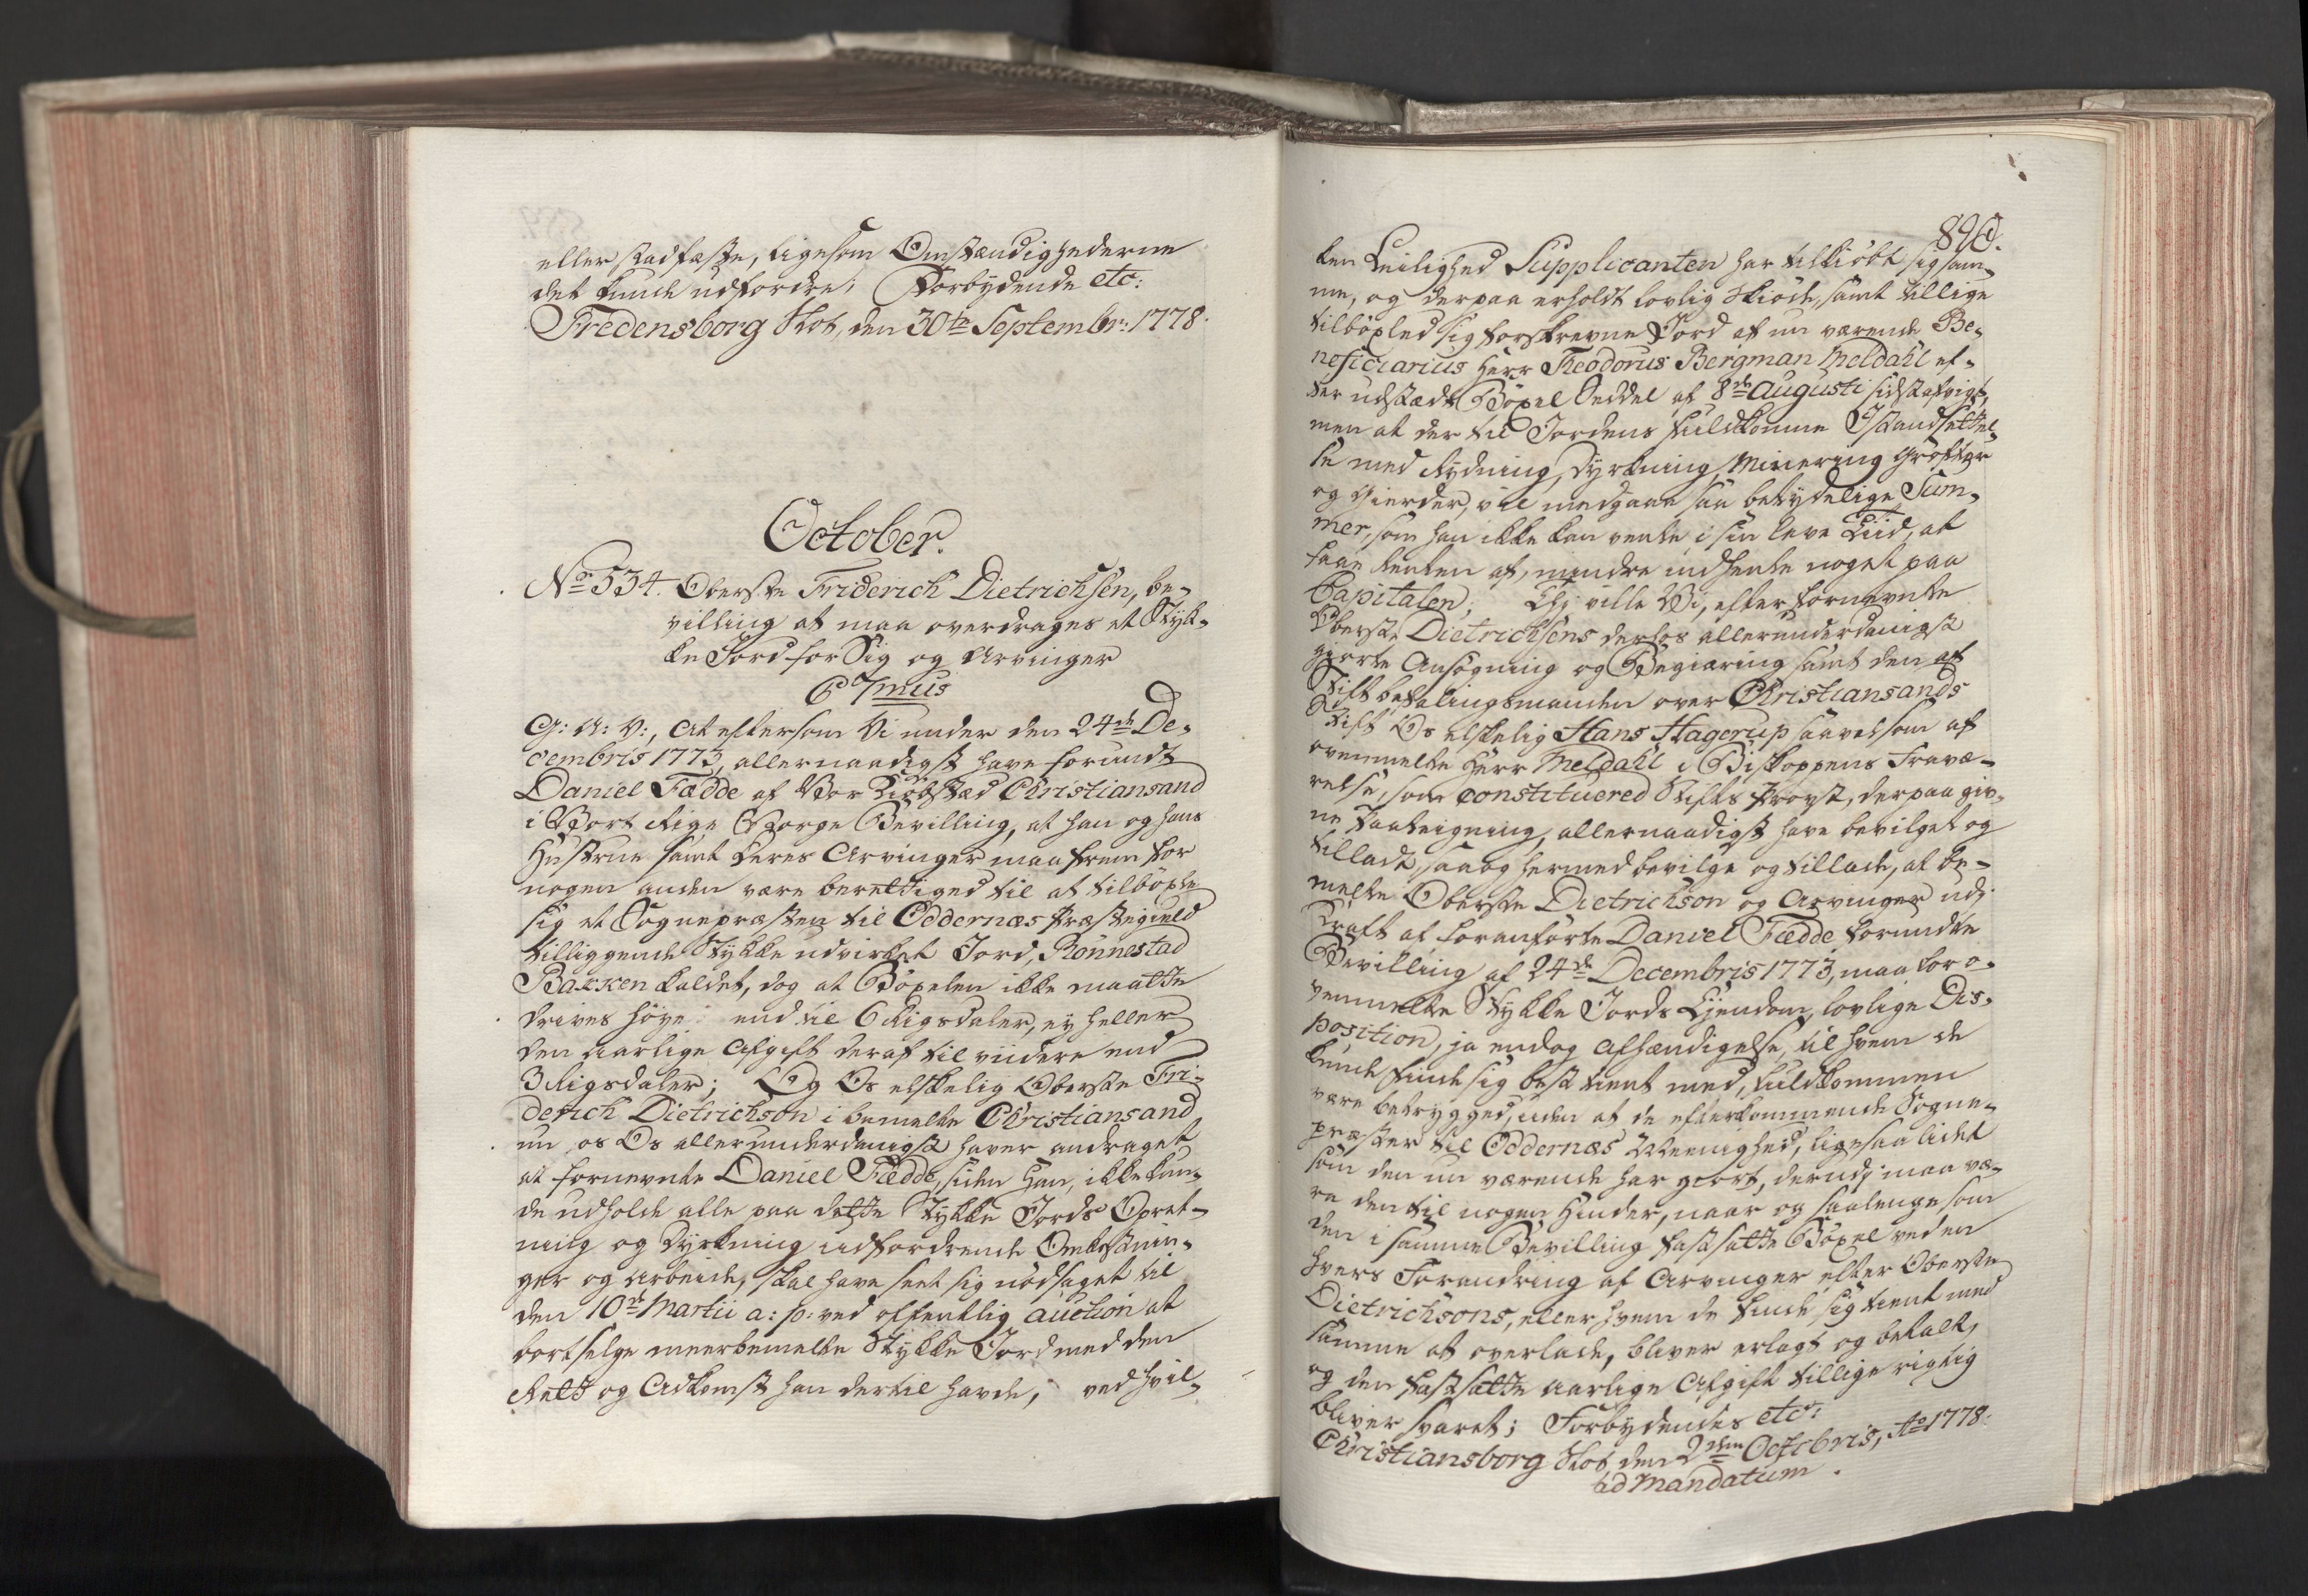 eller stadfæste, ligesom Omstændighederne
det kunde udfordre; Forbydende etc:
Fredensborg Slot, den 30te Septembr: 1778.
October.
No 534. Oberste Friderich Dietrichsen, be-
villing at maa overdrages et Styk-
ke Jord for Sig og Arvinger
C 7mus
G: A: V:, At eftersom Vi under den 24de De-
cembris 1773, allernaadigst have forundt
Daniel Fædde af Vor Kiøbstæd Christiansand
i Vort Rige Norge Bevilling, at han og hans
Hustrue samt deres Arvinger maa frem for
nogen anden være berettiged til at tilböxle
sig et Sognepræsten til Oddernæs Præstegield
tilliggende Stykke udvirket Jord, Rönnestad
Bakken kaldet, dog at Böxelen ikke maatte
drives höye end til 6 Rigsdaler, ey heller
den aarlige Afgift deraf til viidere end
3 Rigsdaler; Og Os elskelig Oberste Fri-
derich Dietrichson i bemelte Christiansand
nu for Os allerunderdanigst haver andraget
at fornevnte Daniel Fædde, siden Han, ikke kun-
de udholde alle paa dette Stykke Jords Opret-
ning og Dyrkning udfordrende Omkostnin-
ger og Arbeide, skal have seet sig nödsaget til
den 10de Martii a: p: ved offentlig auction at
bortselge meerbemelte Stykke Jord med den
Rett og Adkomst han dertil havde, ved hvil-
890.
ken Leilighed Supplicanten har tilkiöbt sig sam-
me, og derpaa erholdt lovlig Skiöde, samt tillige
tilböxled sig forskrevne Jord af nu værende Be-
neficiarius Herr Theodorus Bergman Meldahl ef-
ter udstædt Böxel Seddel af 8de Augusti sidstafvigt,
men at der til Jordens fuldkomne Istandsettel-
se med Rydning, Dyrkning, Minering Gröfter
og Gierder, vil medgaae saa betydelige Sum-
mer, som han ikke kan vente i sin leve Tiid, at
faae Renten af, mindre indhente noget paa
Capitalen; Thj ville Vi, efter fornevnte
Oberste Dietrichsens derfor allerunderdanigst
giorte Ansögning og Begiæring samt den af
Stiftbefalingsmanden over Christiansands
Stift Os elskelig Hans Hagerup saavelsom af
ovenmelte Herr Meldahl i Biskoppens Fravæ-
relse, som constitueret Stifts Provst, derpaa giv-
ne Paategning, allernaadigst have bevilget og
tilladt, saa og hermed bevilge og tillade, at be-
melte Oberste Dietrichson og Arvinger udj
Kraft af foranförte Daniel Fædde forundte
Bevilling af 24de Decembris 1773, maa for o-
venmelte Stykke Jords Ejendom, lovlige Dis-
position, ja endog Afhændigelse, til hvem de
kunde finde sig best tient med, fuldkommen
være betrygged, uden at de efterkommende Sogne-
præster til Oddernæs Meenighed, ligesaa lidet
som den nu værende har giort, derudj maa væ-
re dem til nogen Hinder, naar og saalenge som
den i samme Bevilling fastsatte Böxel ved en
hvers Forandring af Arvinger efter Oberste
Dietrichsons, eller hvem de finde sig tient med
samme at overlade, bliver erlagt og betalt,
og den fastsatte aarlige Afgift tillige rigtig
bliver svaret; Forbydendes etc:
Christiansborg Slot den 2den Octobris, Ao 1778.
ad Mandatum.